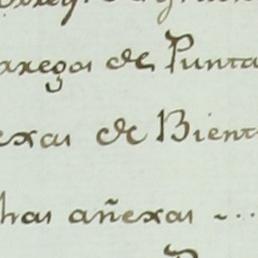 arregos de Punta
exas de Bient
has añexas ~ ...